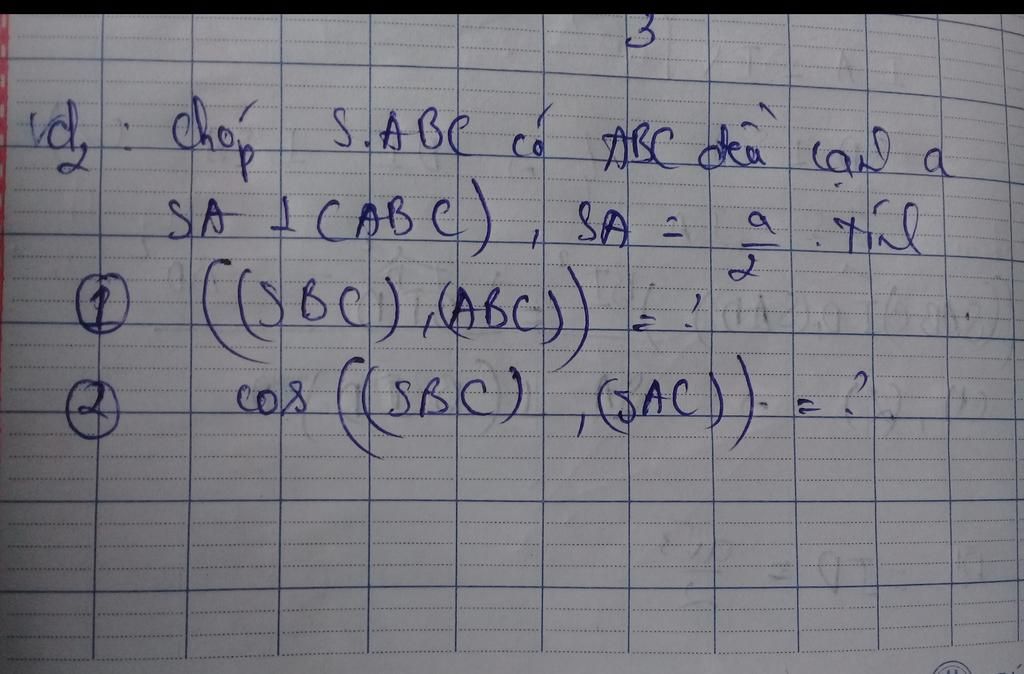 3
vd2 : Chóp S.ABC có ABC đều cạnh a
SA ⊥ (ABC), SA = a/2 . Tính
① ((SBC),(ABC)) = ?
② cos ((SBC),(SAC)) = ?